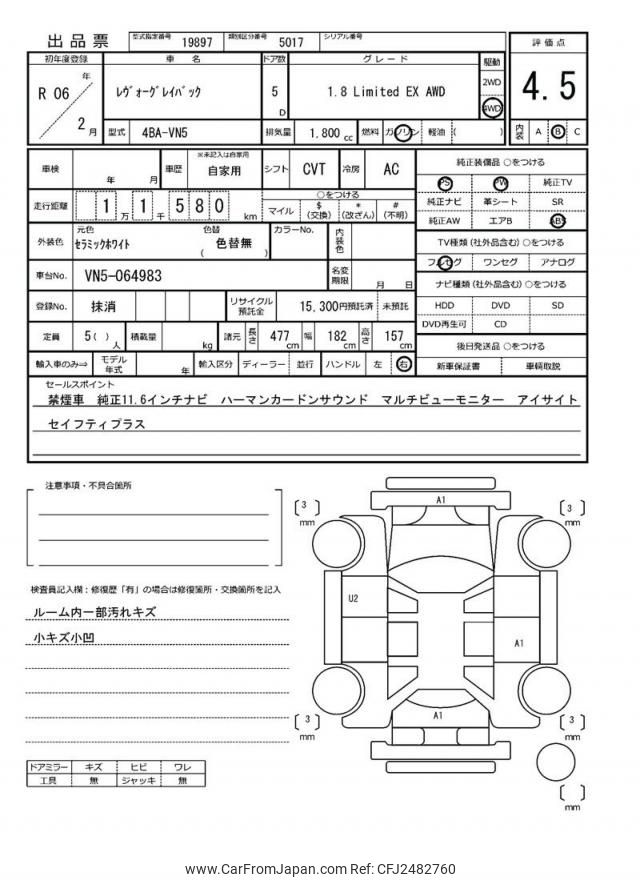 出品票 型式指定番号 19897 類別区分番号 5017 シリアル番号
初年度登録 車名 ドア数 グレード 駆動 評価点
R 06 年 2 月 レヴォーグレイバック 5 D 1.8 Limited EX AWD 2WD 4WD 4.5
型式 4BA-VN5 排気量 1.800 cc 燃料 ガソリン 軽油 ( ) 内装 A B C
車検 年 月 車歴 ※未記入は自家用 自家用 シフト CVT 冷房 AC
走行距離 1 万 1 千 5 8 0 km ○をつける マイル $ (交換) * (改ざん) # (不明)
外装色 元色 セラミックホワイト 色替 ( 色替無 ) カラーNo. 内装色
車台No. VN5-064983 名変期限 月 日
登録No. 抹消 リサイクル預託金 15,300円預託済 未預託
定員 5( ) 人 積載量 kg 諸元 長さ 477 cm 幅 182 cm 高さ 157 cm
輸入車のみ⇒ モデル年式 年 輸入区分 ディーラー 並行 ハンドル 左 右
純正装備品 ○をつける
PS PW 純正TV
純正ナビ 革シート SR
純正AW エアB ABS
TV種類(社外品含む)○をつける
フルセグ ワンセグ アナログ
ナビ種類(社外品含む)○をつける
HDD DVD SD
DVD再生可 CD
後日発送品 ○をつける
新車保証書 車輌取説
セールスポイント
禁煙車 純正11.6インチナビ ハーマンカードンサウンド マルチビューモニター アイサイト
セイフティプラス
注意事項・不具合箇所
検査員記入欄：修復歴「有」の場合は修復箇所・交換箇所を記入
ルーム内一部汚れキズ
小キズ小凹
ドアミラー キズ ヒビ ワレ
工具 無 ジャッキ 無
[ 3 ] mm A1 [ 3 ] mm
U2
A1
[ 3 ] mm A1 [ 3 ] mm
[ ] mm
www.CarFromJapan.com Ref: CFJ2482760